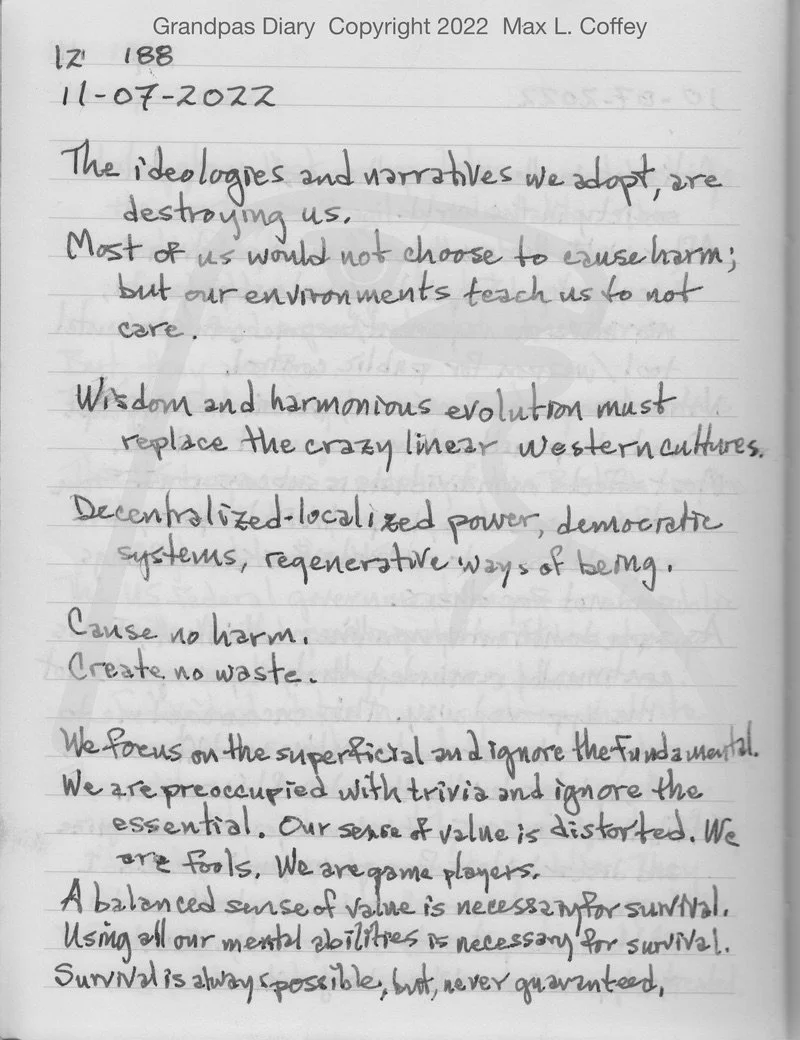 Grandpas Diary Copyright 2022 Max L. Coffey
12' 188
11-07-2022
The ideologies and narratives we adopt, are
destroying us.
Most of us would not choose to cause harm;
but our environments teach us to not
care.
Wisdom and harmonious evolution must
replace the crazy linear western cultures.
Decentralized-localized power, democratic
systems, regenerative ways of being.
Cause no harm.
Create no waste.
We focus on the superficial and ignore the fundamental.
We are preoccupied with trivia and ignore the
essential. Our sense of value is distorted. We
are fools. We are game players.
A balanced sense of value is necessary for survival.
Using all our mental abilities is necessary for survival.
Survival is always possible, but, never guaranteed,